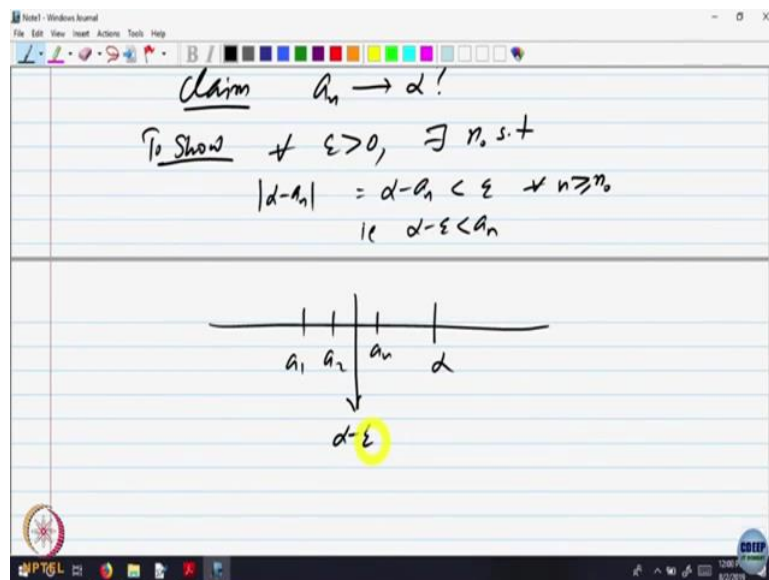 Note1 - Windows Journal
File Edit View Insert Actions Tools Help
Claim aₙ → α!
To Show ∀ ε>0, ∃ n₀ s.t
|α-aₙ| = α-aₙ < ε ∀ n≥n₀
ie α-ε<aₙ
a₁ a₂ aₙ α
α-ε
NPTEL
CDEEP
8/2/2019